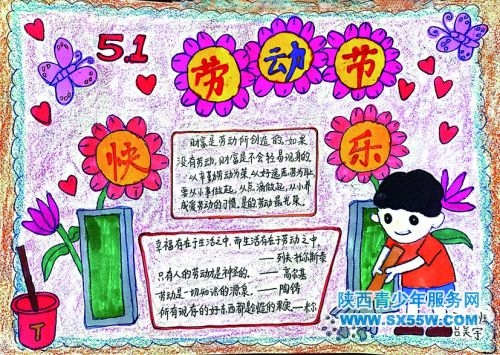 5.1
劳动节
快乐
财富是劳动所创造的,如果
没有劳动,财富是不会轻易现身的
从辛勤劳动为荣,从好逸恶劳为耻,
要从小事做起,从点滴做起,从小养
成爱劳动的习惯,是的劳动最光荣。
幸福存在于生活之中,而生活存在于劳动之中
——列夫·托尔斯泰
只有人的劳动才是神圣的。——高尔基
劳动是一切知识的源泉。——陶铸
所有现存的好东西都是创造的果实——米尔
T
陕西青少年服务网
www.sx55w.com